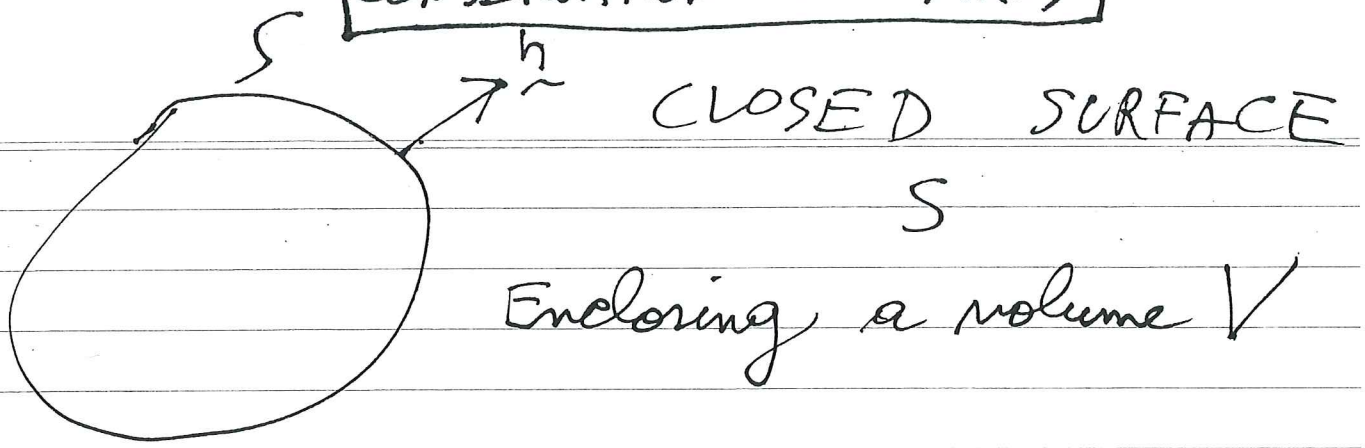 S
n
CLOSED SURFACE
S
Enclosing a volume V